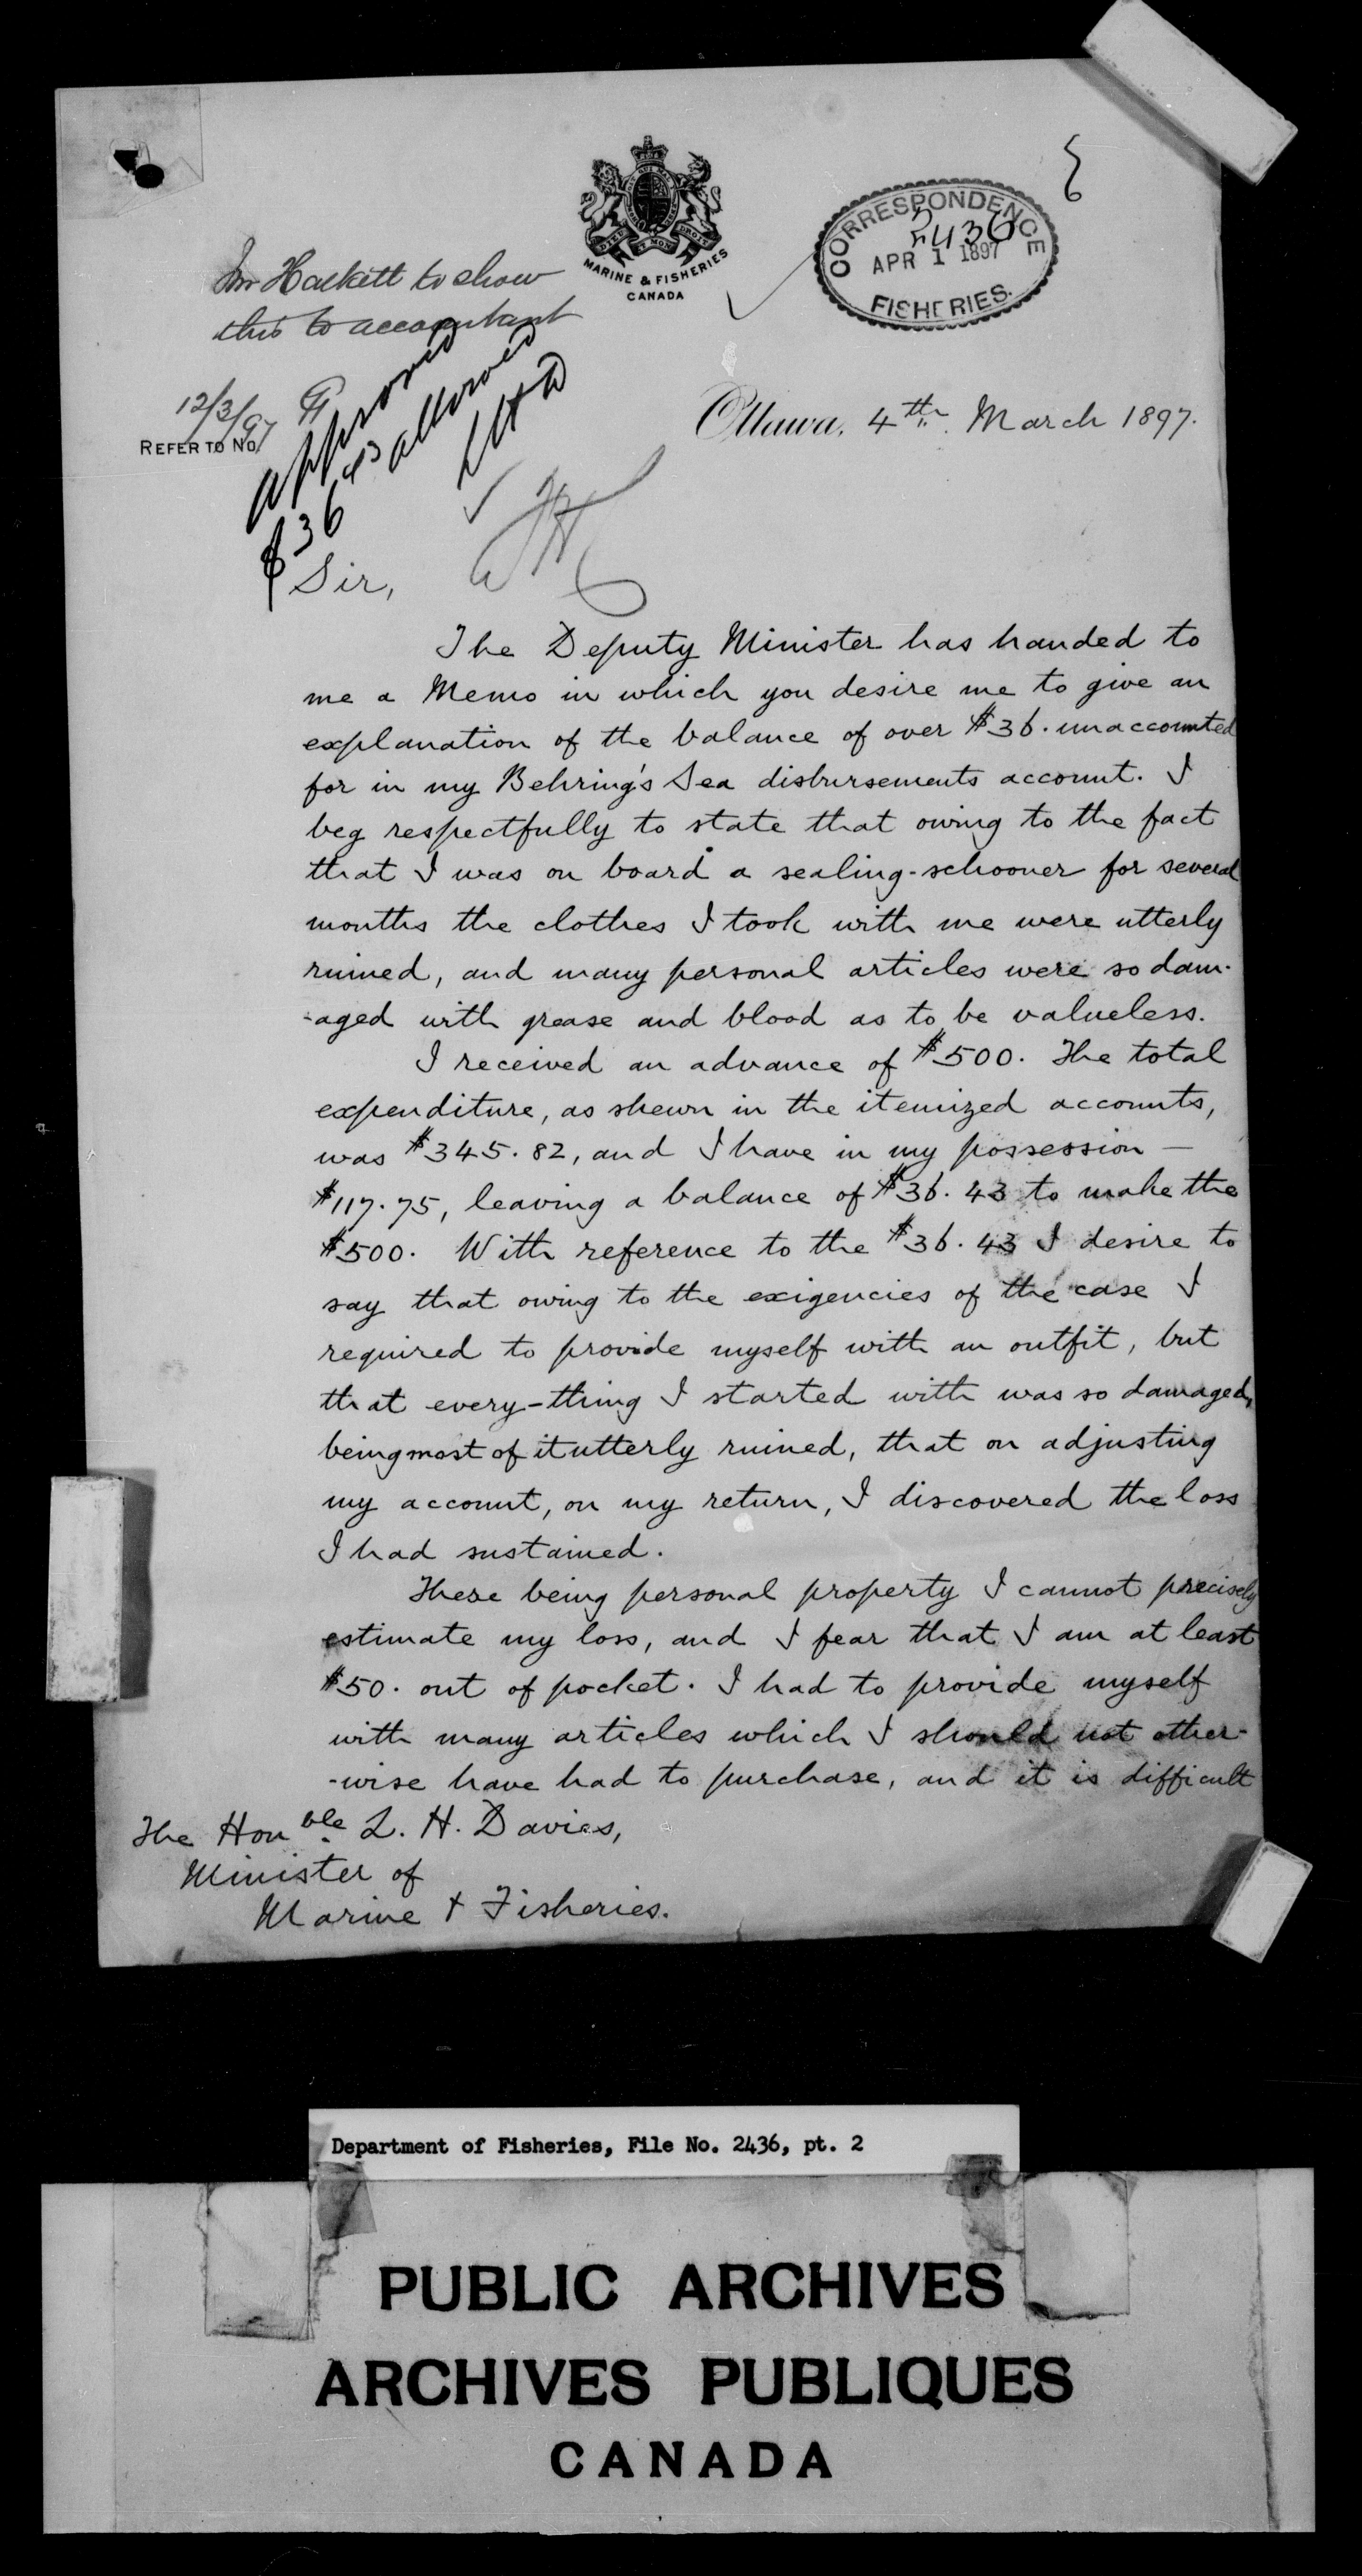 MARINE & FISHERIES
CANADA
CORRESPONDENCE
2436
APR 1 1897
FISHERIES.
Mr Halkett to show
this to accountant
12/3/97
REFER TO No.
approved
$36 43 allowed
LHD
Ottawa, 4th. March 1897.
Sir,
The Deputy Minister has handed to
me a Memo in which you desire me to give an
explanation of the balance of over $36. unaccounted
for in my Behring's Sea disbursements account. I
beg respectfully to state that owing to the fact
that I was on board a sealing-schooner for several
months the clothes I took with me were utterly
ruined, and many personal articles were so dam-
-aged with grease and blood as to be valueless.
I received an advance of $500. The total
expenditure, as shewn in the itemized accounts,
was $345.82, and I have in my possession —
$117.75, leaving a balance of $36.43 to make the
$500. With reference to the $36.43 I desire to
say that owing to the exigencies of the case I
required to provide myself with an outfit, but
that every-thing I started with was so damaged,
being most of it utterly ruined, that on adjusting
my account, on my return, I discovered the loss
I had sustained.
These being personal property I cannot precisely
estimate my loss, and I fear that I am at least
$50. out of pocket. I had to provide myself
with many articles which I should not other-
-wise have had to purchase, and it is difficult
The Honble. L. H. Davies,
Minister of
Marine & Fisheries.
Department of Fisheries, File No. 2436, pt. 2
PUBLIC ARCHIVES
ARCHIVES PUBLIQUES
CANADA